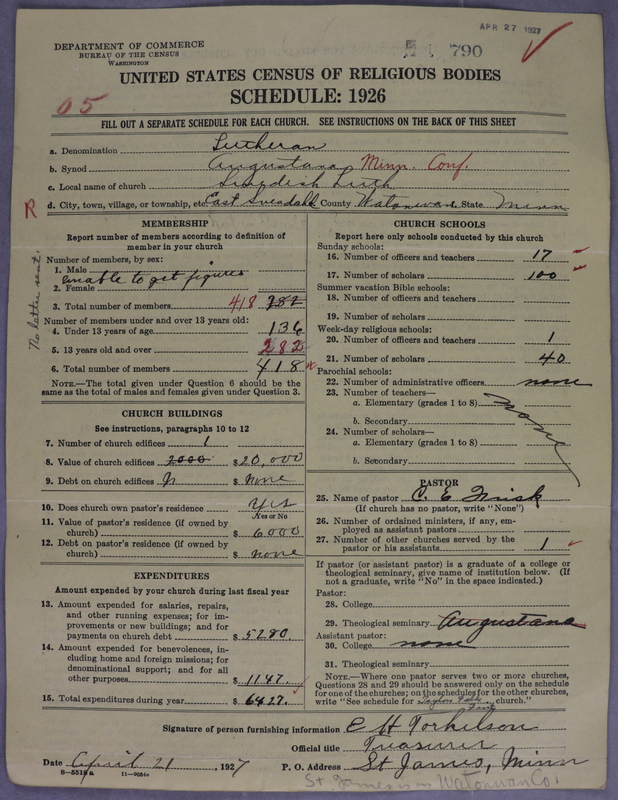 APR 27 1927
790
DEPARTMENT OF COMMERCE
BUREAU OF THE CENSUS
WASHINGTON
UNITED STATES CENSUS OF RELIGIOUS BODIES
SCHEDULE: 1926
05
FILL OUT A SEPARATE SCHEDULE FOR EACH CHURCH. SEE INSTRUCTIONS ON THE BACK OF THIS SHEET
a. Denomination Lutheran
b. Synod Augustana Minn. Conf.
c. Local name of church Swedish Luth
R
d. City, town, village, or township, etc East Sveadahl County Watonwan State Minn
MEMBERSHIP
Report number of members according to definition of
member in your church
Number of members, by sex:
1. Male
unable to get figures
2. Female
3. Total number of members 418 282
Number of members under and over 13 years old:
4. Under 13 years of age 136
5. 13 years old and over 282
6. Total number of members 418
NOTE.—The total given under Question 6 should be the
same as the total of males and females given under Question 3.
No letter sent.
CHURCH BUILDINGS
See instructions, paragraphs 10 to 12
7. Number of church edifices 1
8. Value of church edifices 2000 $ 20,000
9. Debt on church edifices N $ none
10. Does church own pastor's residence Yes
Yes or No
11. Value of pastor's residence (if owned by
church) $ 6000
12. Debt on pastor's residence (if owned by
church) $ none
EXPENDITURES
Amount expended by your church during last fiscal year
13. Amount expended for salaries, repairs,
and other running expenses; for im-
provements or new buildings; and for
payments on church debt $ 5280.
14. Amount expended for benevolences, in-
cluding home and foreign missions; for
denominational support; and for all
other purposes $ 1147.
15. Total expenditures during year $ 6427.
CHURCH SCHOOLS
Report here only schools conducted by this church
Sunday schools:
16. Number of officers and teachers 17
17. Number of scholars 100
Summer vacation Bible schools:
18. Number of officers and teachers
19. Number of scholars
Week-day religious schools:
20. Number of officers and teachers 1
21. Number of scholars 40
Parochial schools:
22. Number of administrative officers none
23. Number of teachers—
a. Elementary (grades 1 to 8) none
b. Secondary
24. Number of scholars—
a. Elementary (grades 1 to 8)
b. Secondary
PASTOR
25. Name of pastor C. E. Frisk
(If church has no pastor, write "None")
26. Number of ordained ministers, if any, em-
ployed as assistant pastors
27. Number of other churches served by the
pastor or his assistants 1
If pastor (or assistant pastor) is a graduate of a college or
theological seminary, give name of institution below. (If
not a graduate, write "No" in the space indicated.)
Pastor:
28. College
29. Theological seminary Augustana
Assistant pastor:
30. College none
31. Theological seminary
NOTE.—Where one pastor serves two or more churches,
Questions 28 and 29 should be answered only on the schedule
for one of the churches; on the schedules for the other churches,
write "See schedule for church."
Signature of person furnishing information E H Torkelson
Official title Treasurer
Date April 21, 1927 P. O. Address St James, Minn
8—5318a 11—9054
St James is in Watonwan Co.